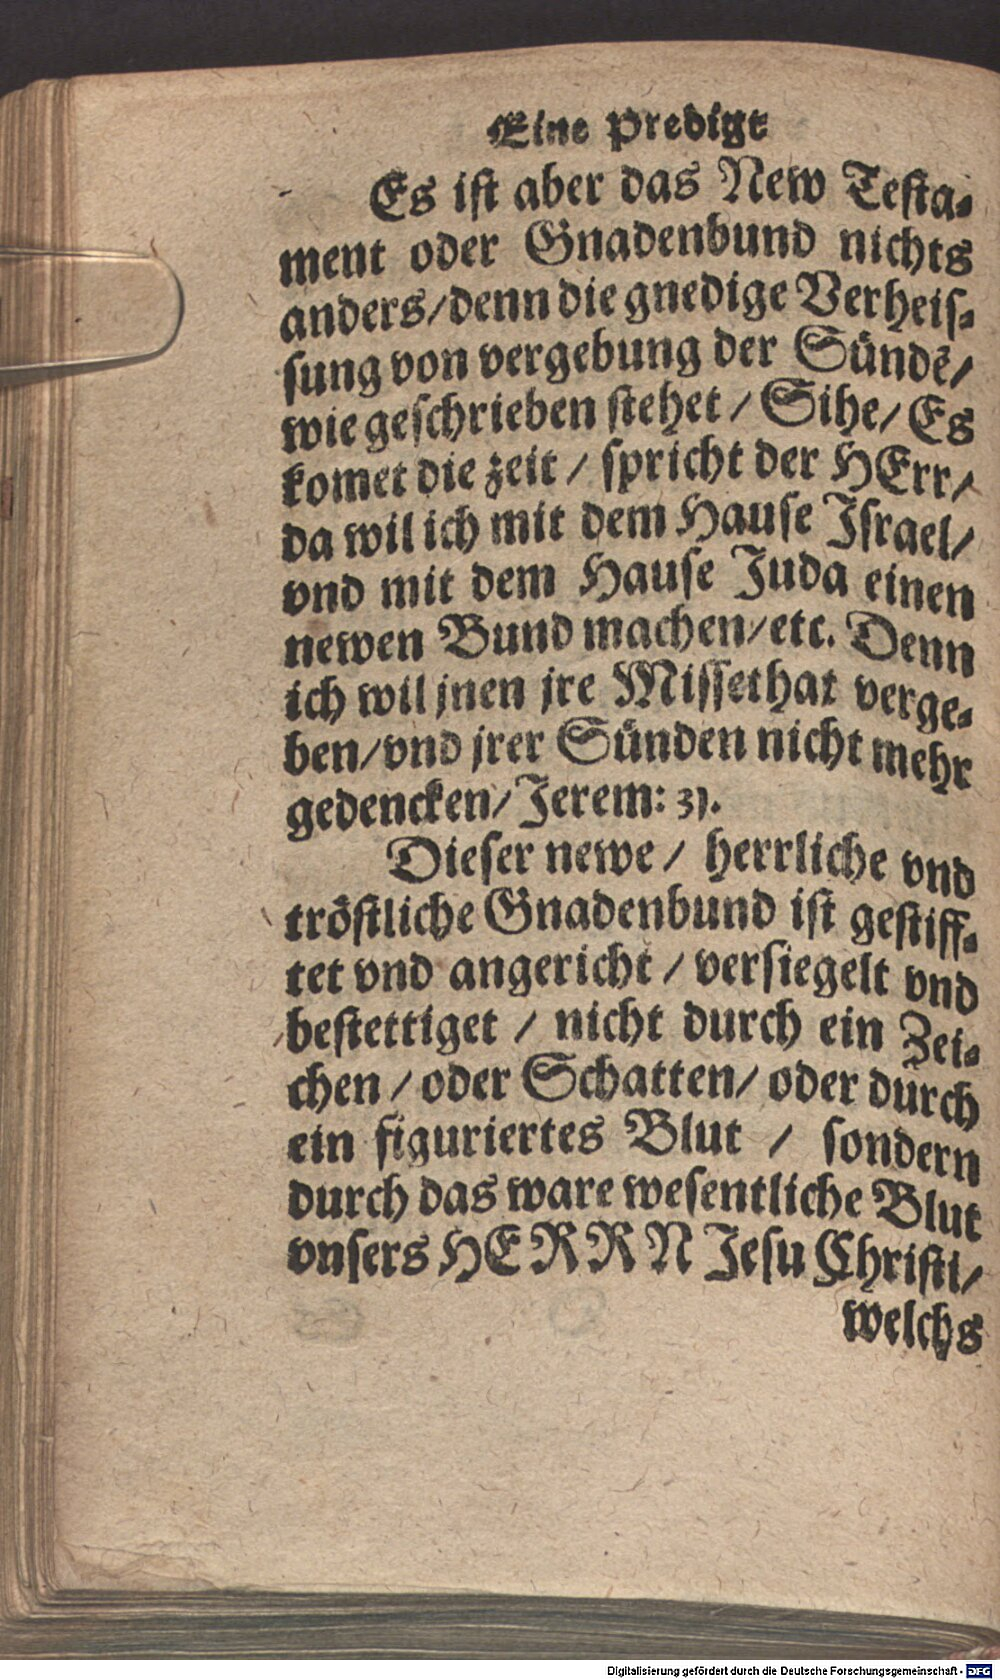 Eine Predigt
Es ist aber das New Testa-
ment oder Gnadenbund nichts
anders/denn die gnedige Verheis-
sung von vergebung der Sündē/
wie geschrieben stehet / Sihe/ Es
komet die zeit / spricht der HErr/
da wil ich mit dem Hause Israel/
vnd mit dem Hause Juda einen
newen Bund machen/etc. Denn
ich wil jnen jre Missethat verge-
ben/vnd jrer Sünden nicht mehr
gedencken/Jerem: 31.
Dieser newe / herrliche vnd
tröstliche Gnadenbund ist gestiff-
tet vnd angericht / versiegelt vnd
bestettiget / nicht durch ein Zei-
chen / oder Schatten/ oder durch
ein figuriertes Blut / sondern
durch das ware wesentliche Blut
vnsers HERRN Jesu Christi/
welchs
Digitalisierung gefördert durch die Deutsche Forschungsgemeinschaft - DFG